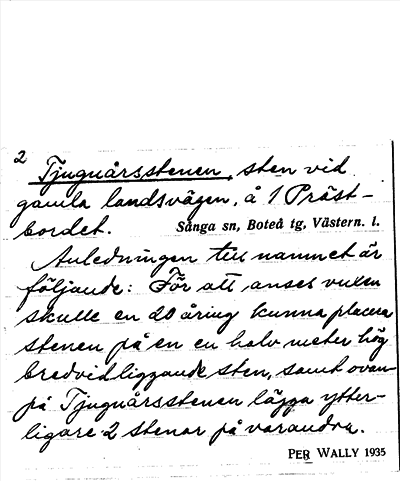 2
Tjuguårsstenen, sten vid
gamla landsvägen, å 1 Präst-
bordet. Sånga sn, Boteå tg, Västern. l.
Anledningen till namnet är
följande: För att anses vuxen
skulle en 20 åring kunna placera
stenen på en en halv meter hög
bredvidliggande sten, samt ovan-
på Tjuguårsstenen lägga ytter-
ligare 2 stenar på varandra.
PER WALLY 1935